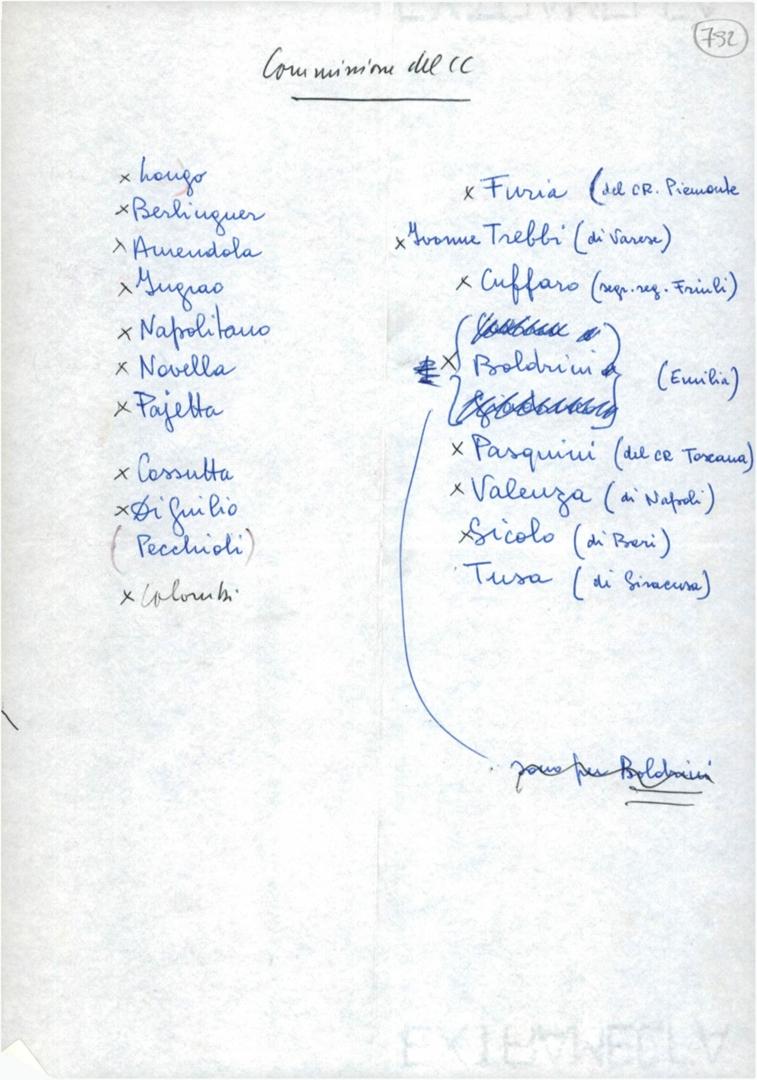 792
Commissione del CC
x Longo
x Berlinguer
x Amendola
x Ingrao
x Napolitano
x Novella
x Pajetta
x Cossutta
x Di Giulio
(Pecchioli)
x Colombi
x Furia (del CR. Piemonte
x Ivonne Trebbi (di Varese)
x Cuffaro (segr. reg. Friuli)
x Boldrini (Emilia)
x Pasquini (del CR Toscana)
x Valenza (di Napoli)
x Sicolo (di Bari)
Tusa (di Siracusa)
sono per Boldrini
EXTRAMELLA